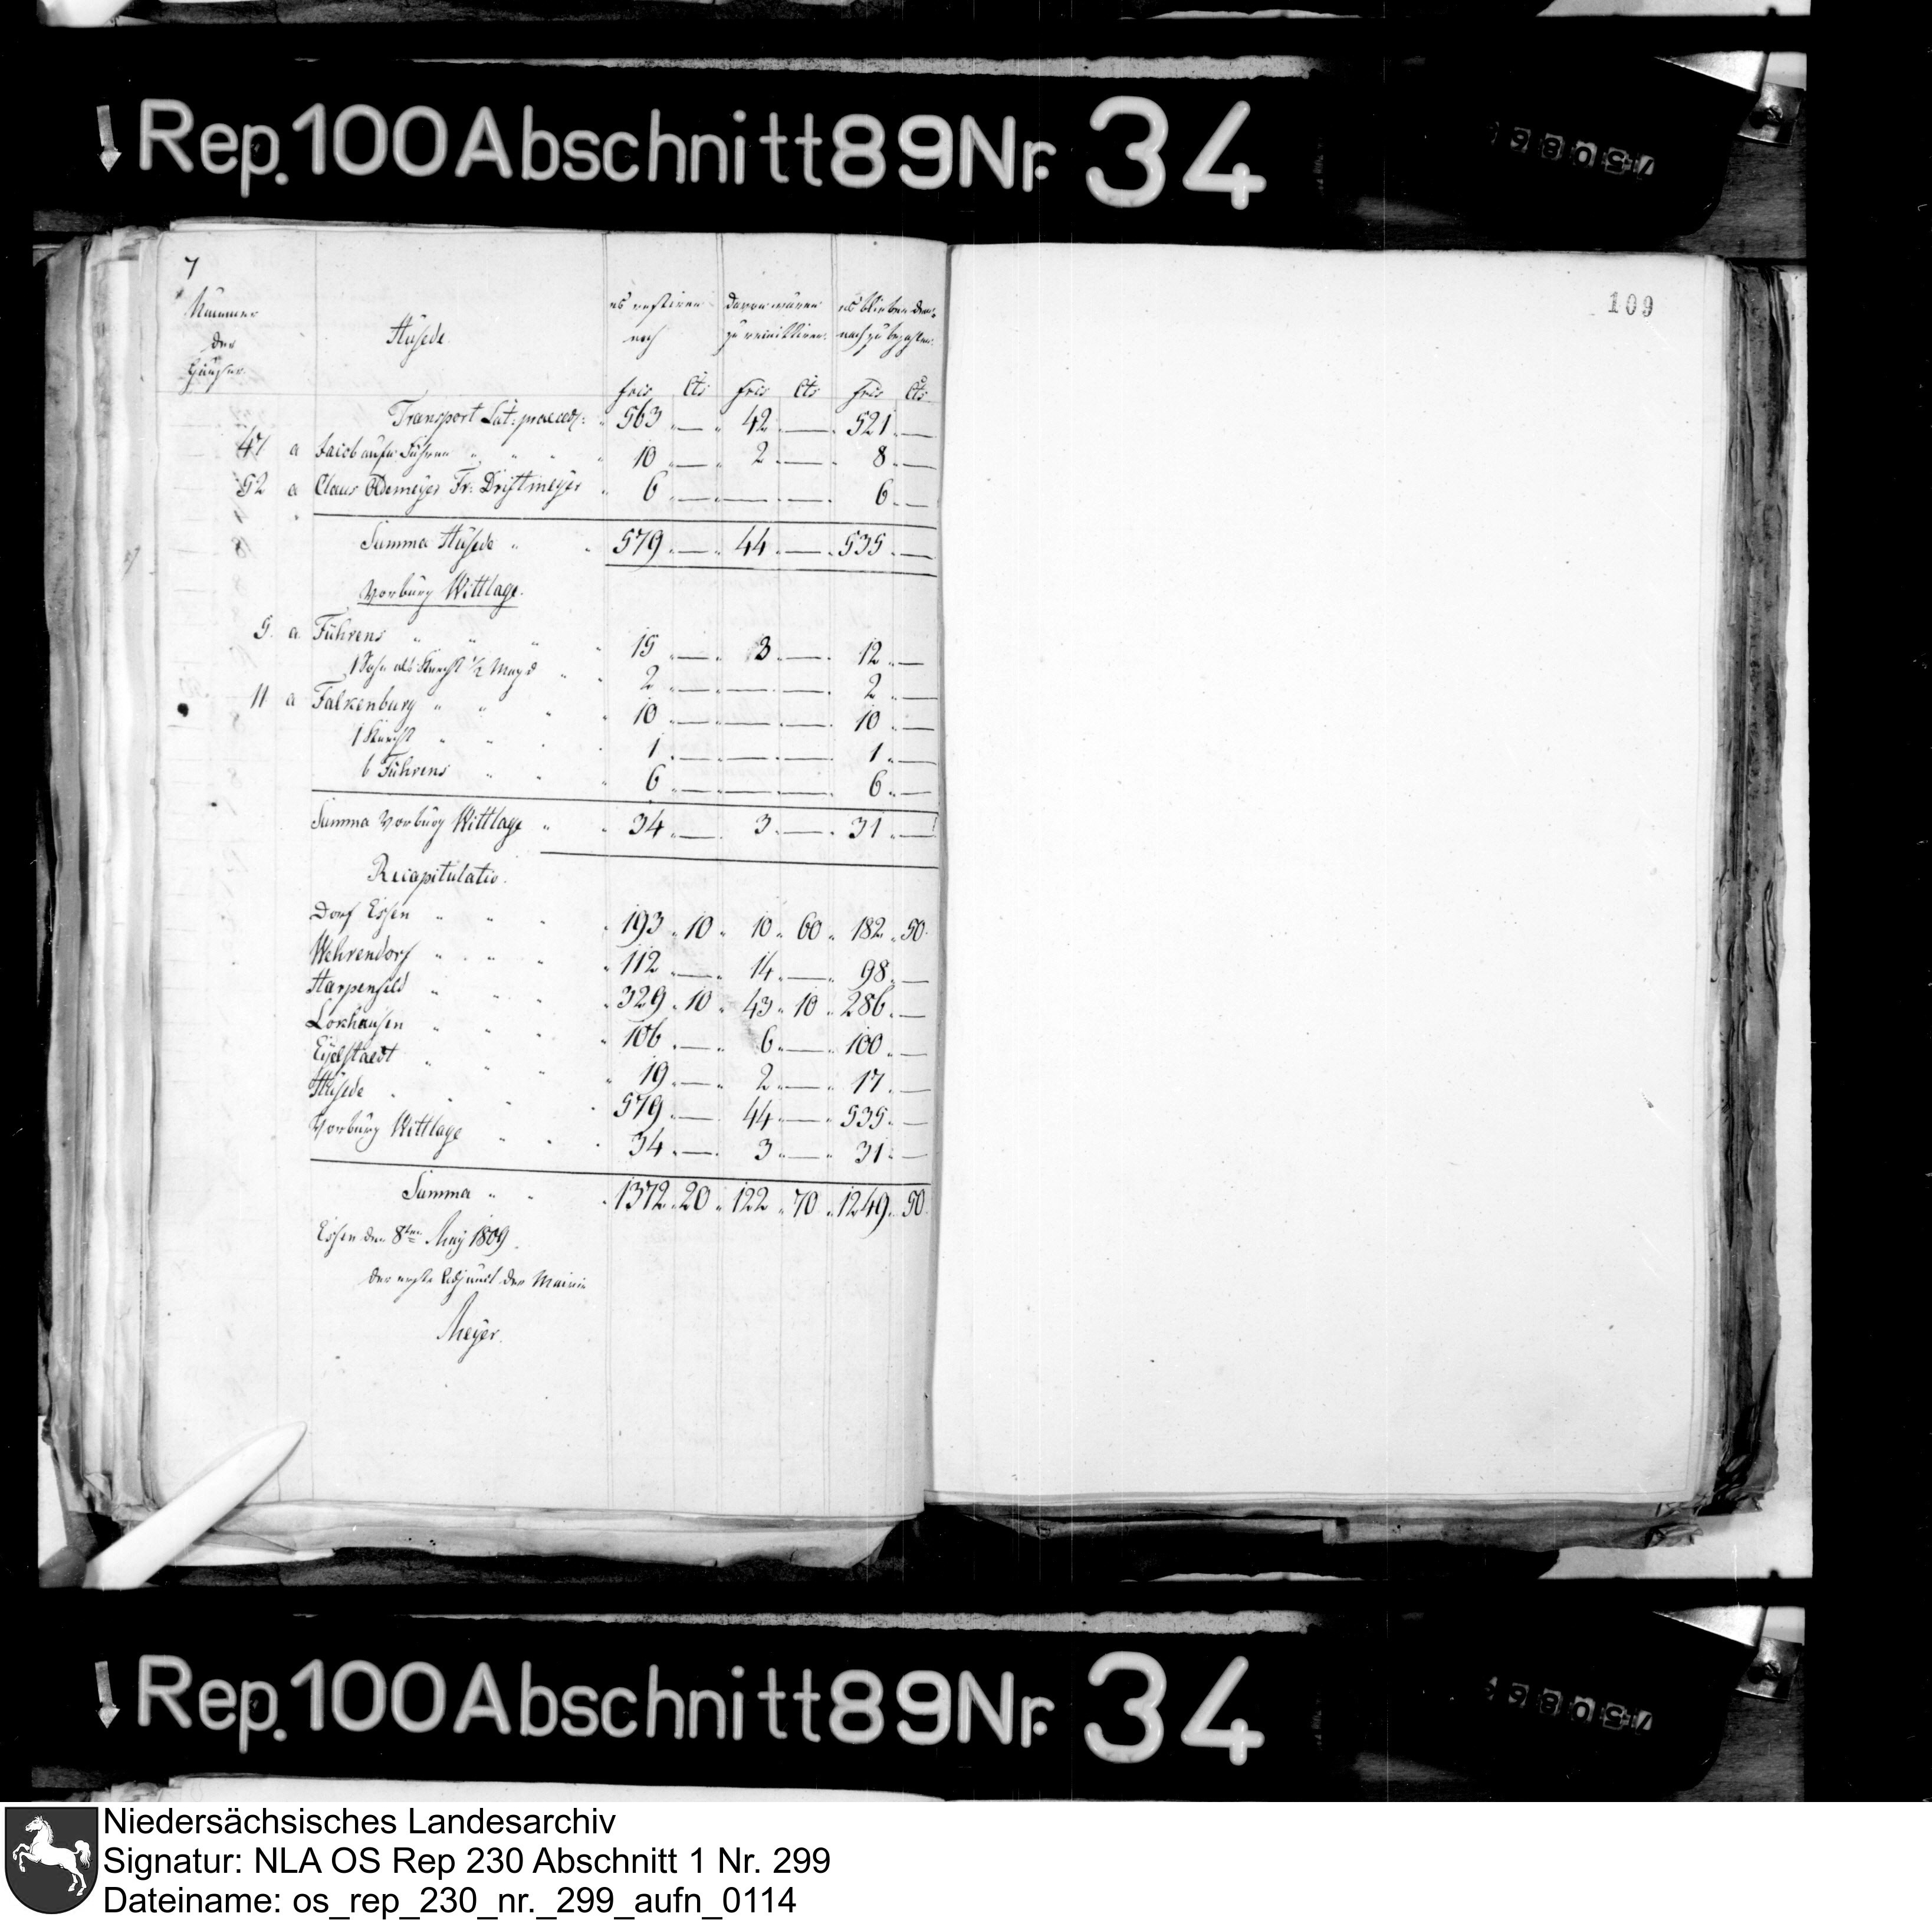 Rep. 100 Abschnitt 89 Nr. 34
7
109
Nummer der Häuser
Hüsede.
es restiren noch
davon wären zu remittiren
es blieben demnach zu bezahlen
frcs Cts frcs Cts frcs Cts
Transport Lat: praeced: 563 — 42 — 521 —
47 a Jacob aufn Führen 10 — 2 — 8 —
52 a Claus Odemeyer Fr: Driftmeyer 6 — — — 6 —
Summa Hüsede 579 — 44 — 535 —
Vorburg Wittlage.
5. a. Führens 15 — 3 — 12 —
1 Sohn als Knecht 1/2 Magd 2 — — — 2 —
11 a Falkenburg 10 — — — 10 —
1 Knecht 1 — — — 1 —
b Führens 6 — — — 6 —
Summa Vorburg Wittlage 34 — 3 — 31 —
Recapitulatio.
Dorf Essen 193 10 10 60 182 50
Wehrendorf 112 — 14 — 98 —
Harpenfeld 329 10 43 10 286 —
Lokhausen 106 — 6 — 100 —
Eyelstaedt 19 — 2 — 17 —
Hüsede 579 — 44 — 535 —
Vorburg Wittlage 34 — 3 — 31 —
Summa 1372 20 122 70 1249 50
Essen den 8ten May 1809
der erste Adjunct der Mairie
Meyer.
Rep. 100 Abschnitt 89 Nr. 34
Niedersächsisches Landesarchiv
Signatur: NLA OS Rep 230 Abschnitt 1 Nr. 299
Dateiname: os_rep_230_nr._299_aufn_0114